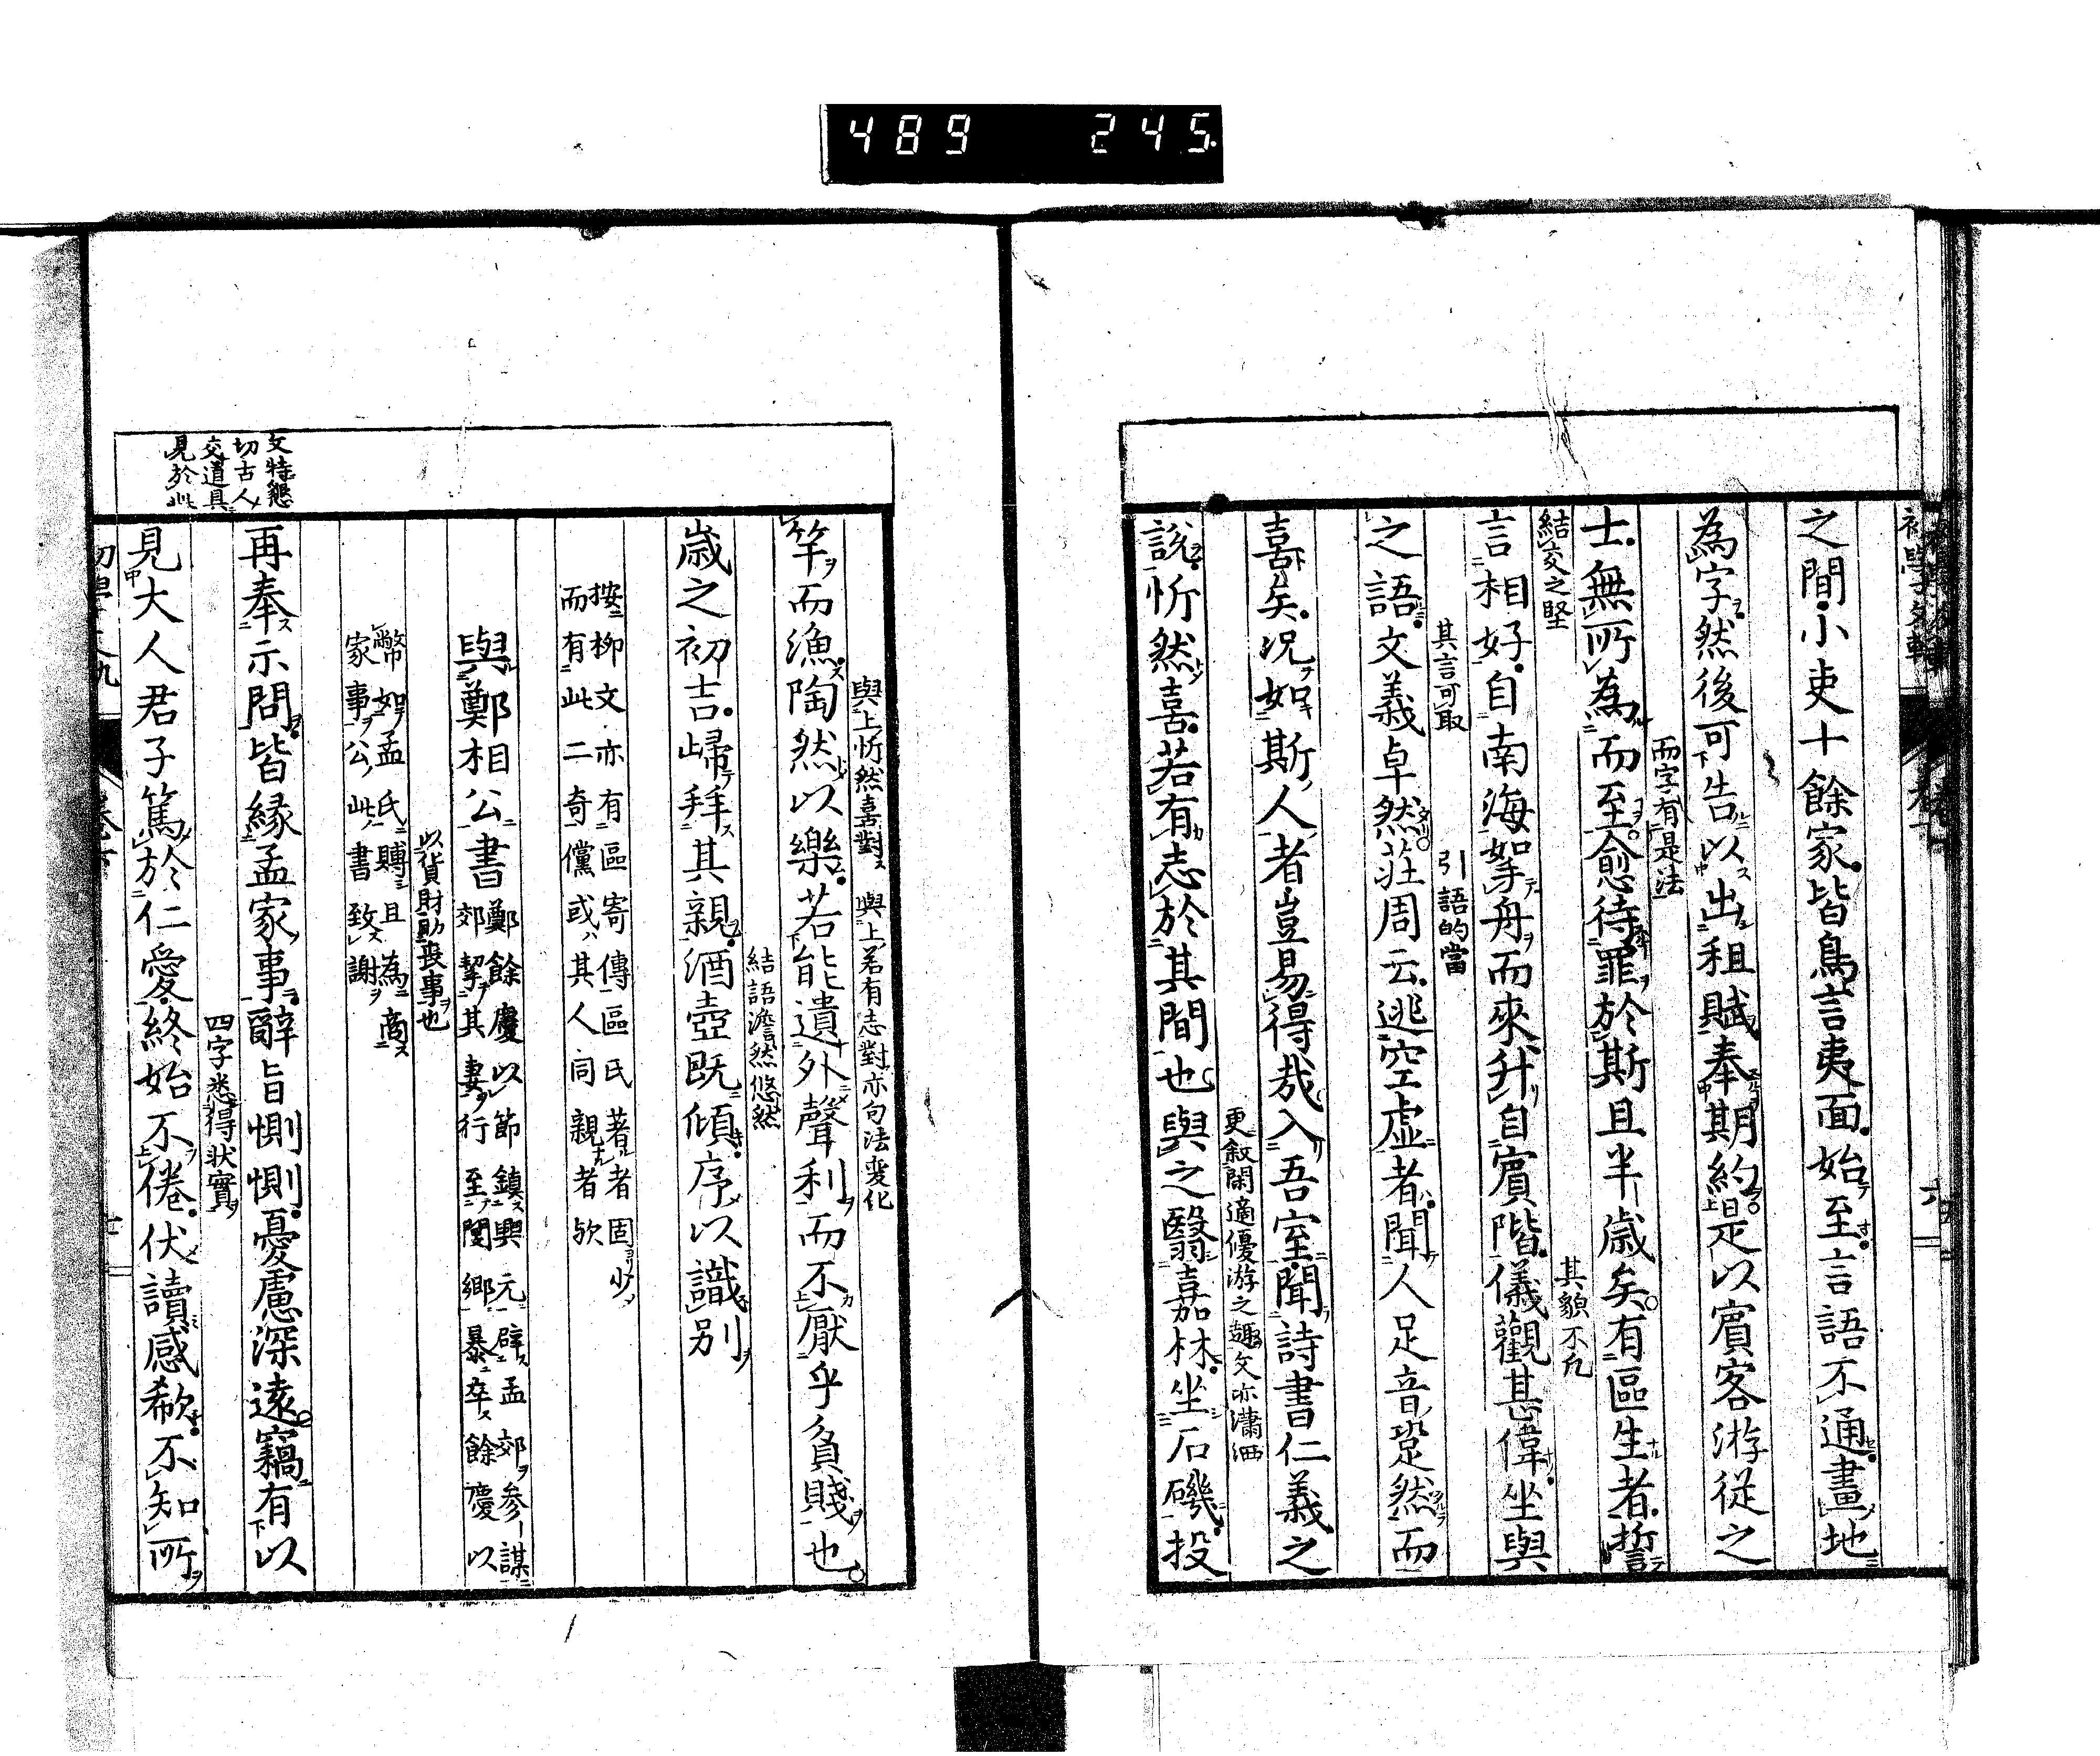 489 245
之間小吏十餘家皆鳥言夷面始至言語不通畫地
為字然後可告以出租賦奉期約是以賓客游從之
而字有是法
士無所為而至愈待罪於斯且半歲矣有區生者誓
結交之堅
其貌不凡
言相好自南海挐舟而來升自賓階儀觀甚偉坐與
其言可取
引語的當
之語文義卓然莊周云逃空虛者聞人足音跫然而
喜矣況如斯人者豈易得哉入吾室聞詩書仁義之
更敘閑適優游之趣文亦瀟洒
說忻然喜若有志於其間也與之翳嘉林坐石磯投
與上忻然喜對 與上若有志對亦句法変化
竿而漁陶然以樂若能遺外聲利而不厭乎貧賤也
結語澹然悠然
歲之初吉歸拜其親酒壺既傾序以識別
按柳文亦有區寄傳區氏著者固少
而有此二奇儻或其人同親者歟
與鄭相公書
鄭餘慶以節鎮興元辟孟郊参謀
郊挈其妻行至閺鄉暴卒餘慶以
以貨財助喪事也
幣如孟氏賻且為商
家事公此書致謝
再奉示問皆緣孟家事辭旨惻惻憂慮深遠竊有以
四字悉得状實
見大人君子篤於仁愛終始不倦伏讀感欷不知所
文特懇
切古人
交道具
見於此